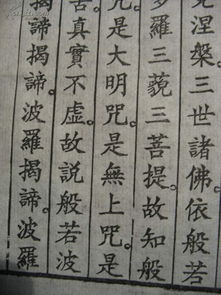 究涅槃。三世諸佛。依般若
多羅三藐三菩提。故知般
咒。是大明咒。是無上咒。是
苦。真實不虛。故說般若波
揭諦揭諦。波羅揭諦。波羅